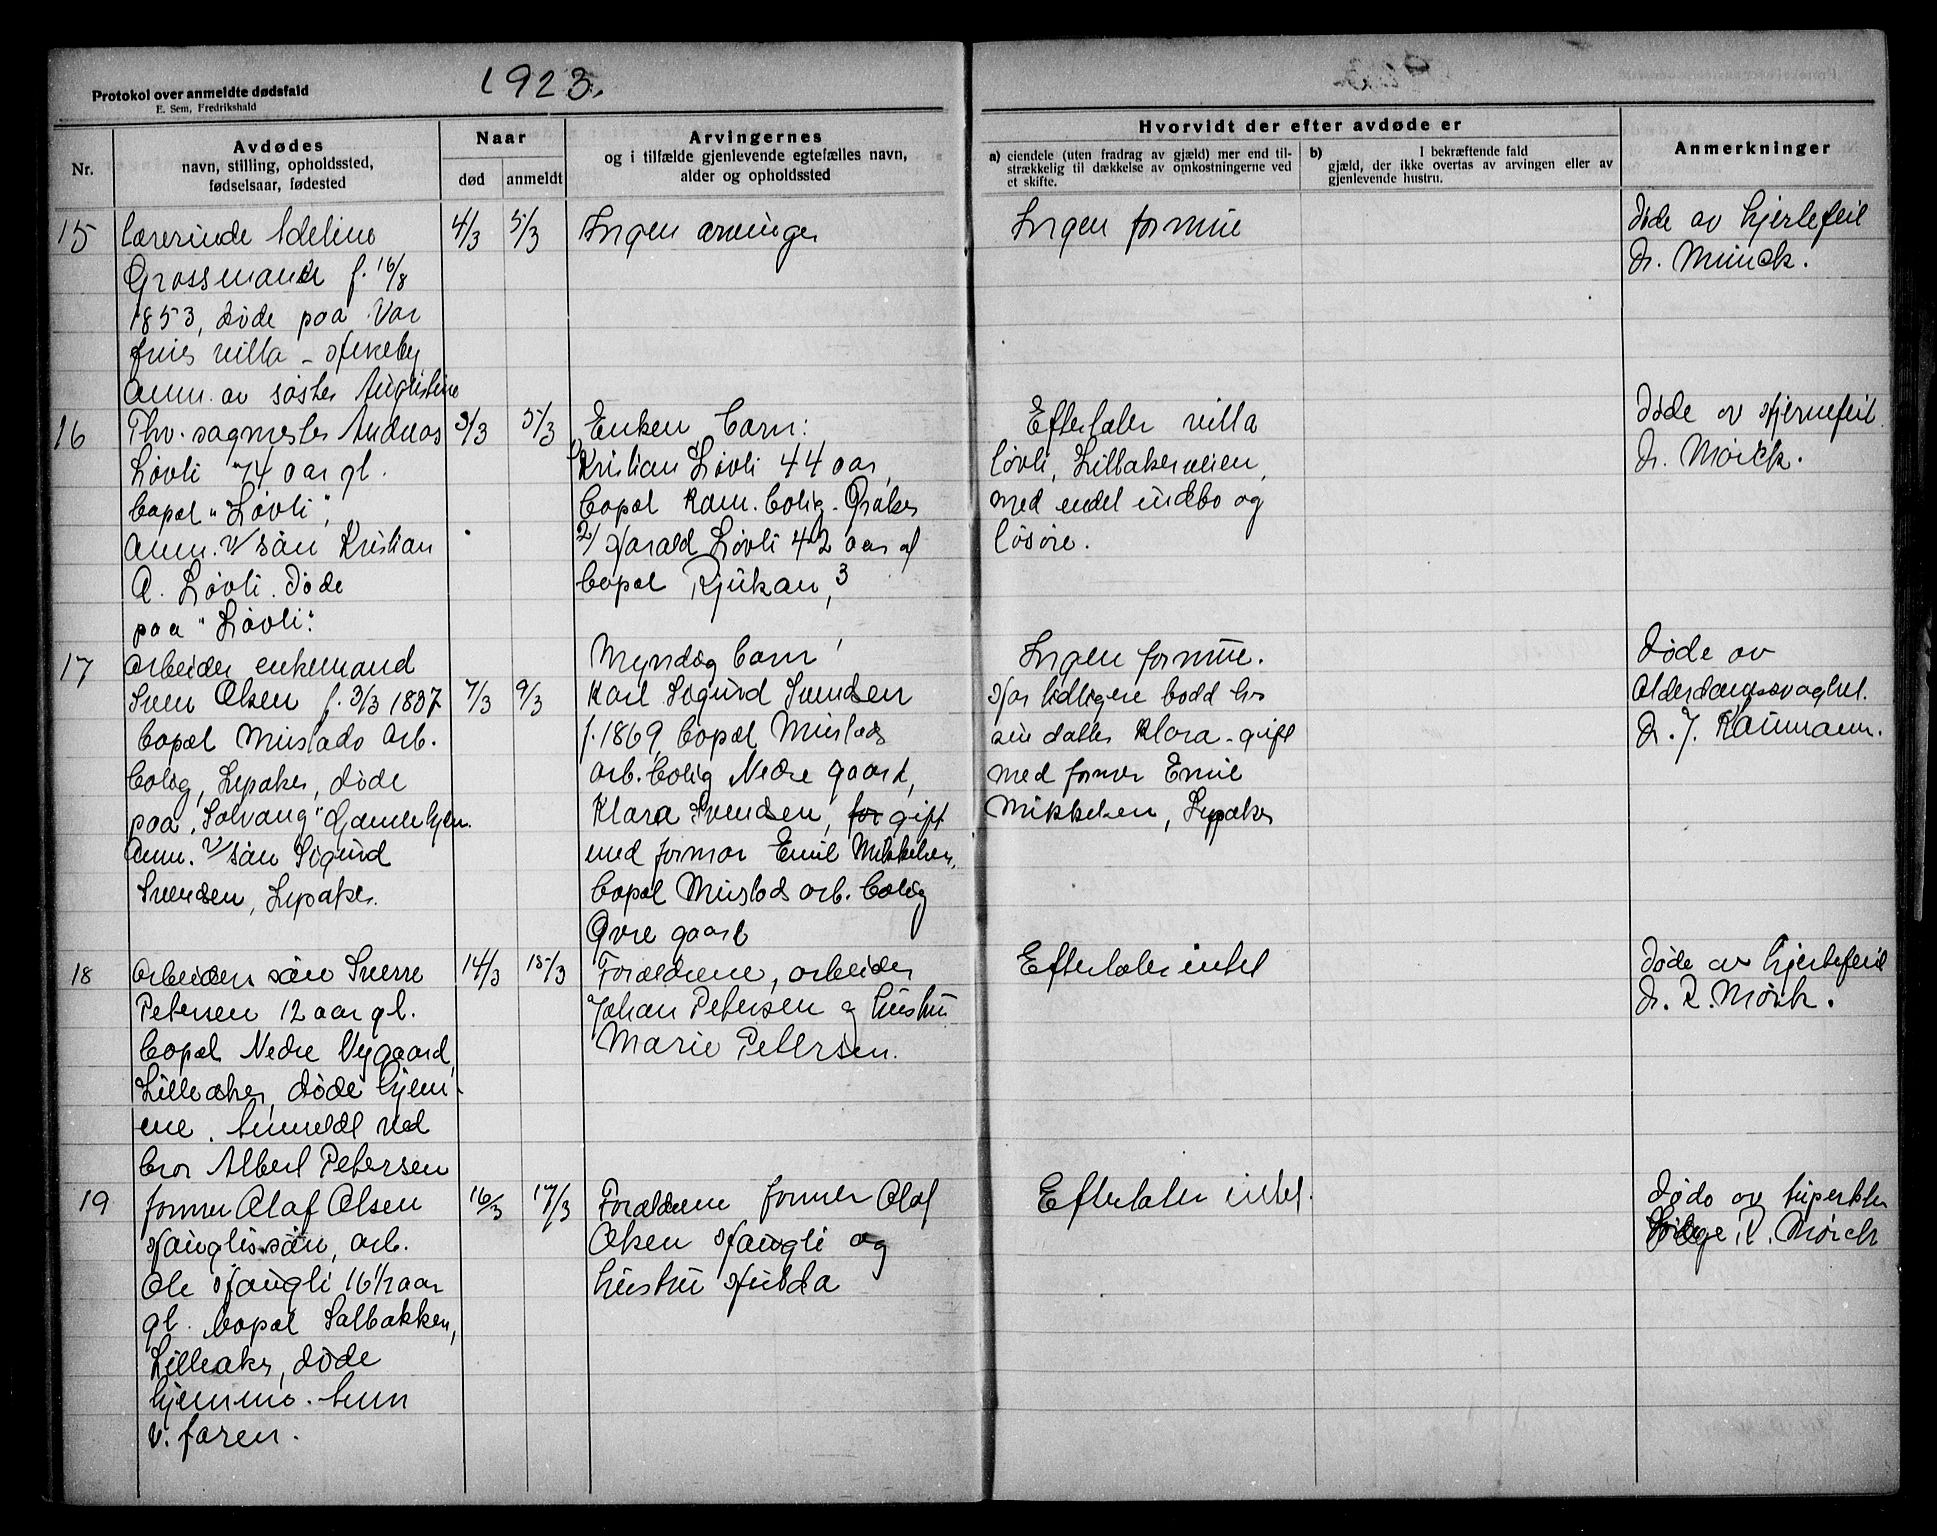 1923.
Protokol over anmeldte dødsfald
E. Sem, Fredrikshald
Nr.
Avdødes
navn, stilling, opholdssted,
fødselsaar, fødested
Naar
død
anmeldt
Arvingernes
og i tilfælde gjenlevende egtefælles navn,
alder og opholdssted
Hvorvidt der efter avdøde er
a) eiendele (uten fradrag av gjæld) mer end til-
strækkelig til dækkelse av omkostningerne ved
et skifte.
b) I bekræftende fald
gjæld, der ikke overtas av arvingen eller av
gjenlevende hustru.
Anmerkninger
15
Lærerinde Adeline
Grossmann f. 16/8
1853, døde paa Var
villa - Fkeby
Anm. av søster Augustine
4/3
5/3
Ingen arvinger
Ingen formue
Døde av hjertefeil
Dr. Munck.
16
Fhv. sagmester Andreas
Løvli 74 aar gl.
bopæl "Løvli",
Anm. v/ søn Kristian
A. Løvli. Døde
paa "Løvli".
3/3
5/3
Enken, barn:
1) Kristian Løvli 44 aar,
bopæl Kom. bolig. Øraker
2/ Harald Løvli 42 aar gl
bopæl Rjukan, 3
Efterlater villa
Løvli, Lilleakerveien,
med endel indbo og
løsøre.
Døde av hjernefeil
Dr. Mørck.
17
Arbeider enkemand
Sven Olsen f. 3/3 1837
bopæl Mustads arb.
bolig, Lysaker, døde
paa "Solvang" Gamlehjem.
Anm. v/ søn Sigurd
Svendsen, Lysaker.
7/3
9/3
Myndig barn!
Karl Sigurd Svendsen
f. 1869, bopæl Mustads
arb. bolig Nedre gaard,
Klara Svendsen, for gift
med formør Emil Mikkelsen,
bopæl Mustads arb. bolig
Øvre gaard
Ingen formue.
Har tidligere bodd hos
sin datter Klara - gift
med former Emil
Mikkelsen, Lysaker
Døde av
Alderdomssvaghet.
Dr. J. Raumann.
18
Arbeiders søn Sverre
Petersen 12 aar gl.
bopæl Nedre Vygaard,
Lilleaker, døde hjem-
me. Anmeldt ved
bror Albert Petersen
14/3
15/3
Forældrene, arbeider
Johan Petersen og hustru
Marie Petersen.
Efterlater intet
Døde av hjertefeil
Dr. R. Mørck.
19
former Olaf Olsen
Hauglis søn, arb.
Ole Haugli 16½ aar
gl. bopæl Solbakken,
Lilleaker, døde
hjemme. Anm
v. faren.
16/3
17/3
Forældrene former Olaf
Olsen Haugli og
hustru Hulda
Efterlater intet.
Døde av tuperkler
R. Mørck